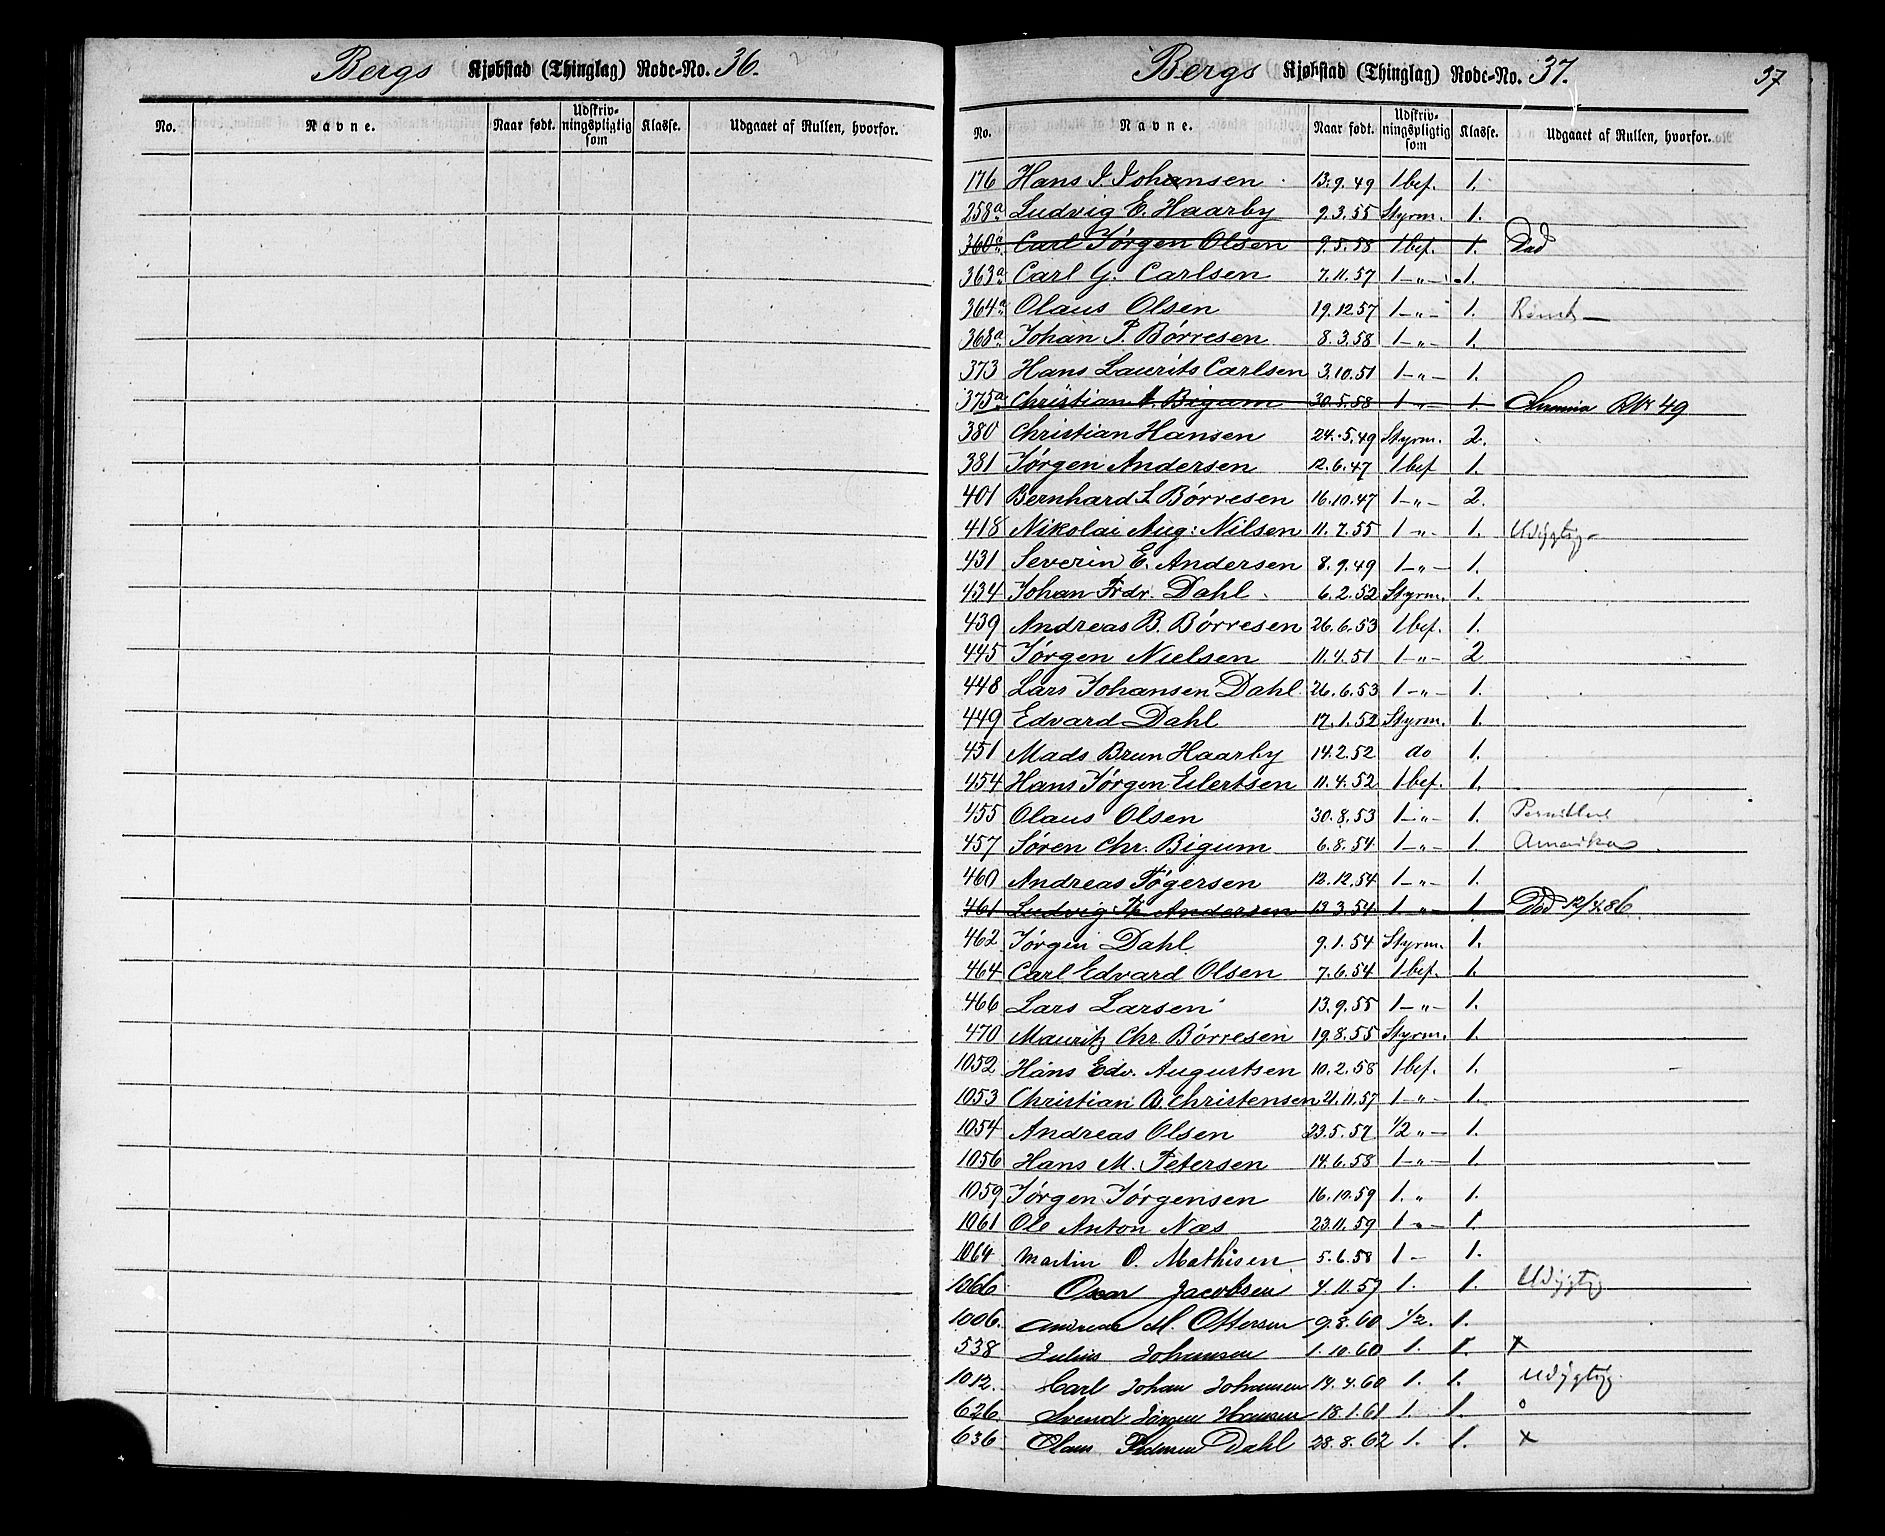 Bergs Kjøbstad (Thinglag) Rode-No. 36.
No. Navne. Naar født. Udskrivningspligtig som Klasse. Udgaaet af Rullen, hvorfor.
Bergs Kjøbstad (Thinglag) Rode-No. 37. 37
No. Navne. Naar født. Udskrivningspligtig som Klasse. Udgaaet af Rullen, hvorfor.
176 Hans J. Johansen 13.9.49 1 bef. 1.
258a Ludvig E. Haarby 9.3.55 Styrm. 1.
360a Carl Jørgen Olsen 9.5.58 1 bef. 1. Død
363a Carl G. Carlsen 7.11.57 1 -"- 1.
364a Olaus Olsen 19.12.57 1 -"- 1.
368a Johan P. Börresen 8.3.58 1 -"- 1.
373 Hans Laurits Carlsen 3.10.51 1 -"- 1.
375a Christian A. Bigum 30.5.58 1 " 1 49
380 Christian Hansen 24.5.49 Styrm. 2.
381 Jørgen Andersen 12.6.47 1 bef 1.
401 Bernhard L Börresen 16.10.47 1 -"- 2.
418 Nikolai Aug: Nilsen 11.7.55 1 -"- 1. Udygtig
431 Severin E. Andersen 8.9.49 1 -"- 1.
434 Johan Frdr. Dahl 6.2.52 Styrm. 1.
439 Andreas B. Börresen 26.6.53 1 bef. 1.
445 Jørgen Nielsen 11.4.51 1 -"- 2
448 Lars Johansen Dahl 26.6.53 1 -"- 1.
449 Edvard Dahl 17.1.52 Styrm. 1.
451 Mads Brun Haarby 14.2.52 do 1.
454 Hans Jørgen Eilertsen 11.4.52 1 bef. 1.
455 Olaus Olsen 30.8.53 1 -"- 1.
457 Søren Chr. Bigum 6.8.54 1 -"- 1. Amerika
460 Andreas Tögersen 12.12.54 1 -"- 1.
461 Ludvig Th Andersen 13.3.54 1 " 1 Død 12/4.86.
462 Jørgen Dahl 9.1.54 Styrm. 1.
464 Carl Edvard Olsen 7.6.54 1 bef. 1.
466 Lars Larsen 13.9.55 1 -"- 1.
470 Mauritz Chr. Börresen 19.8.55 Styrm. 1.
1052 Hans Edv. Augustsen 10.2.58 1 bef. 1.
1053 Christian A. Christensen 21.11.57 1 -"- 1.
1054 Andreas Olsen 23.5.57 1/2 "- 1.
1056 Hans M. Petersen 14.6.58 1 -"- 1.
1059 Jørgen Jørgensen 16.10.59 1. " 1.
1061 Ole Anton Næs 23.11.59 1 -"- 1.
1064 Martin O. Mathisen 5.6.58 1 - 1.
1066 Oscar Jacobsen 4.11.57 1. 1. Udygtig
1006. Andreas M. Ottersen 9.8.60 1/2. 1.
538 Julius Johansen 1.10.60 1. 1. x
1012. Carl Johan Johansen 14.4.60 1. 1. Udygtig.
626. Svend Jørgen Hansen 18.1.61 1. 1. o
636 Olaus Dahl 28.8.62 1. 1. x